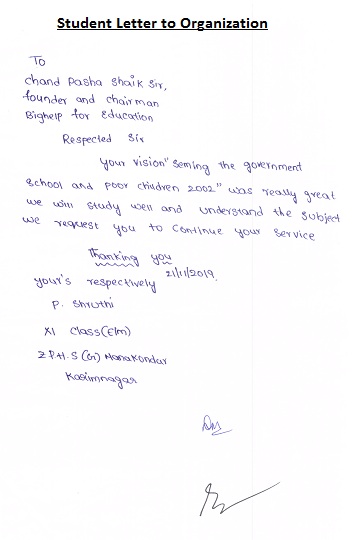 Student Letter to Organization
To
chand Pasha Shaik Sir,
founder and chairman
Bighelp for Education
Respected Sir
your vision "Seming the government
School and poor children 2002" was really great
we will study well and understand the Subject
we request you to Continue your Service
Thanking you
21/11/2019.
your's respectively
P. Shruthi
XI Class (E/m)
Z.P.H.S (G) Manakondur
Karimnagar